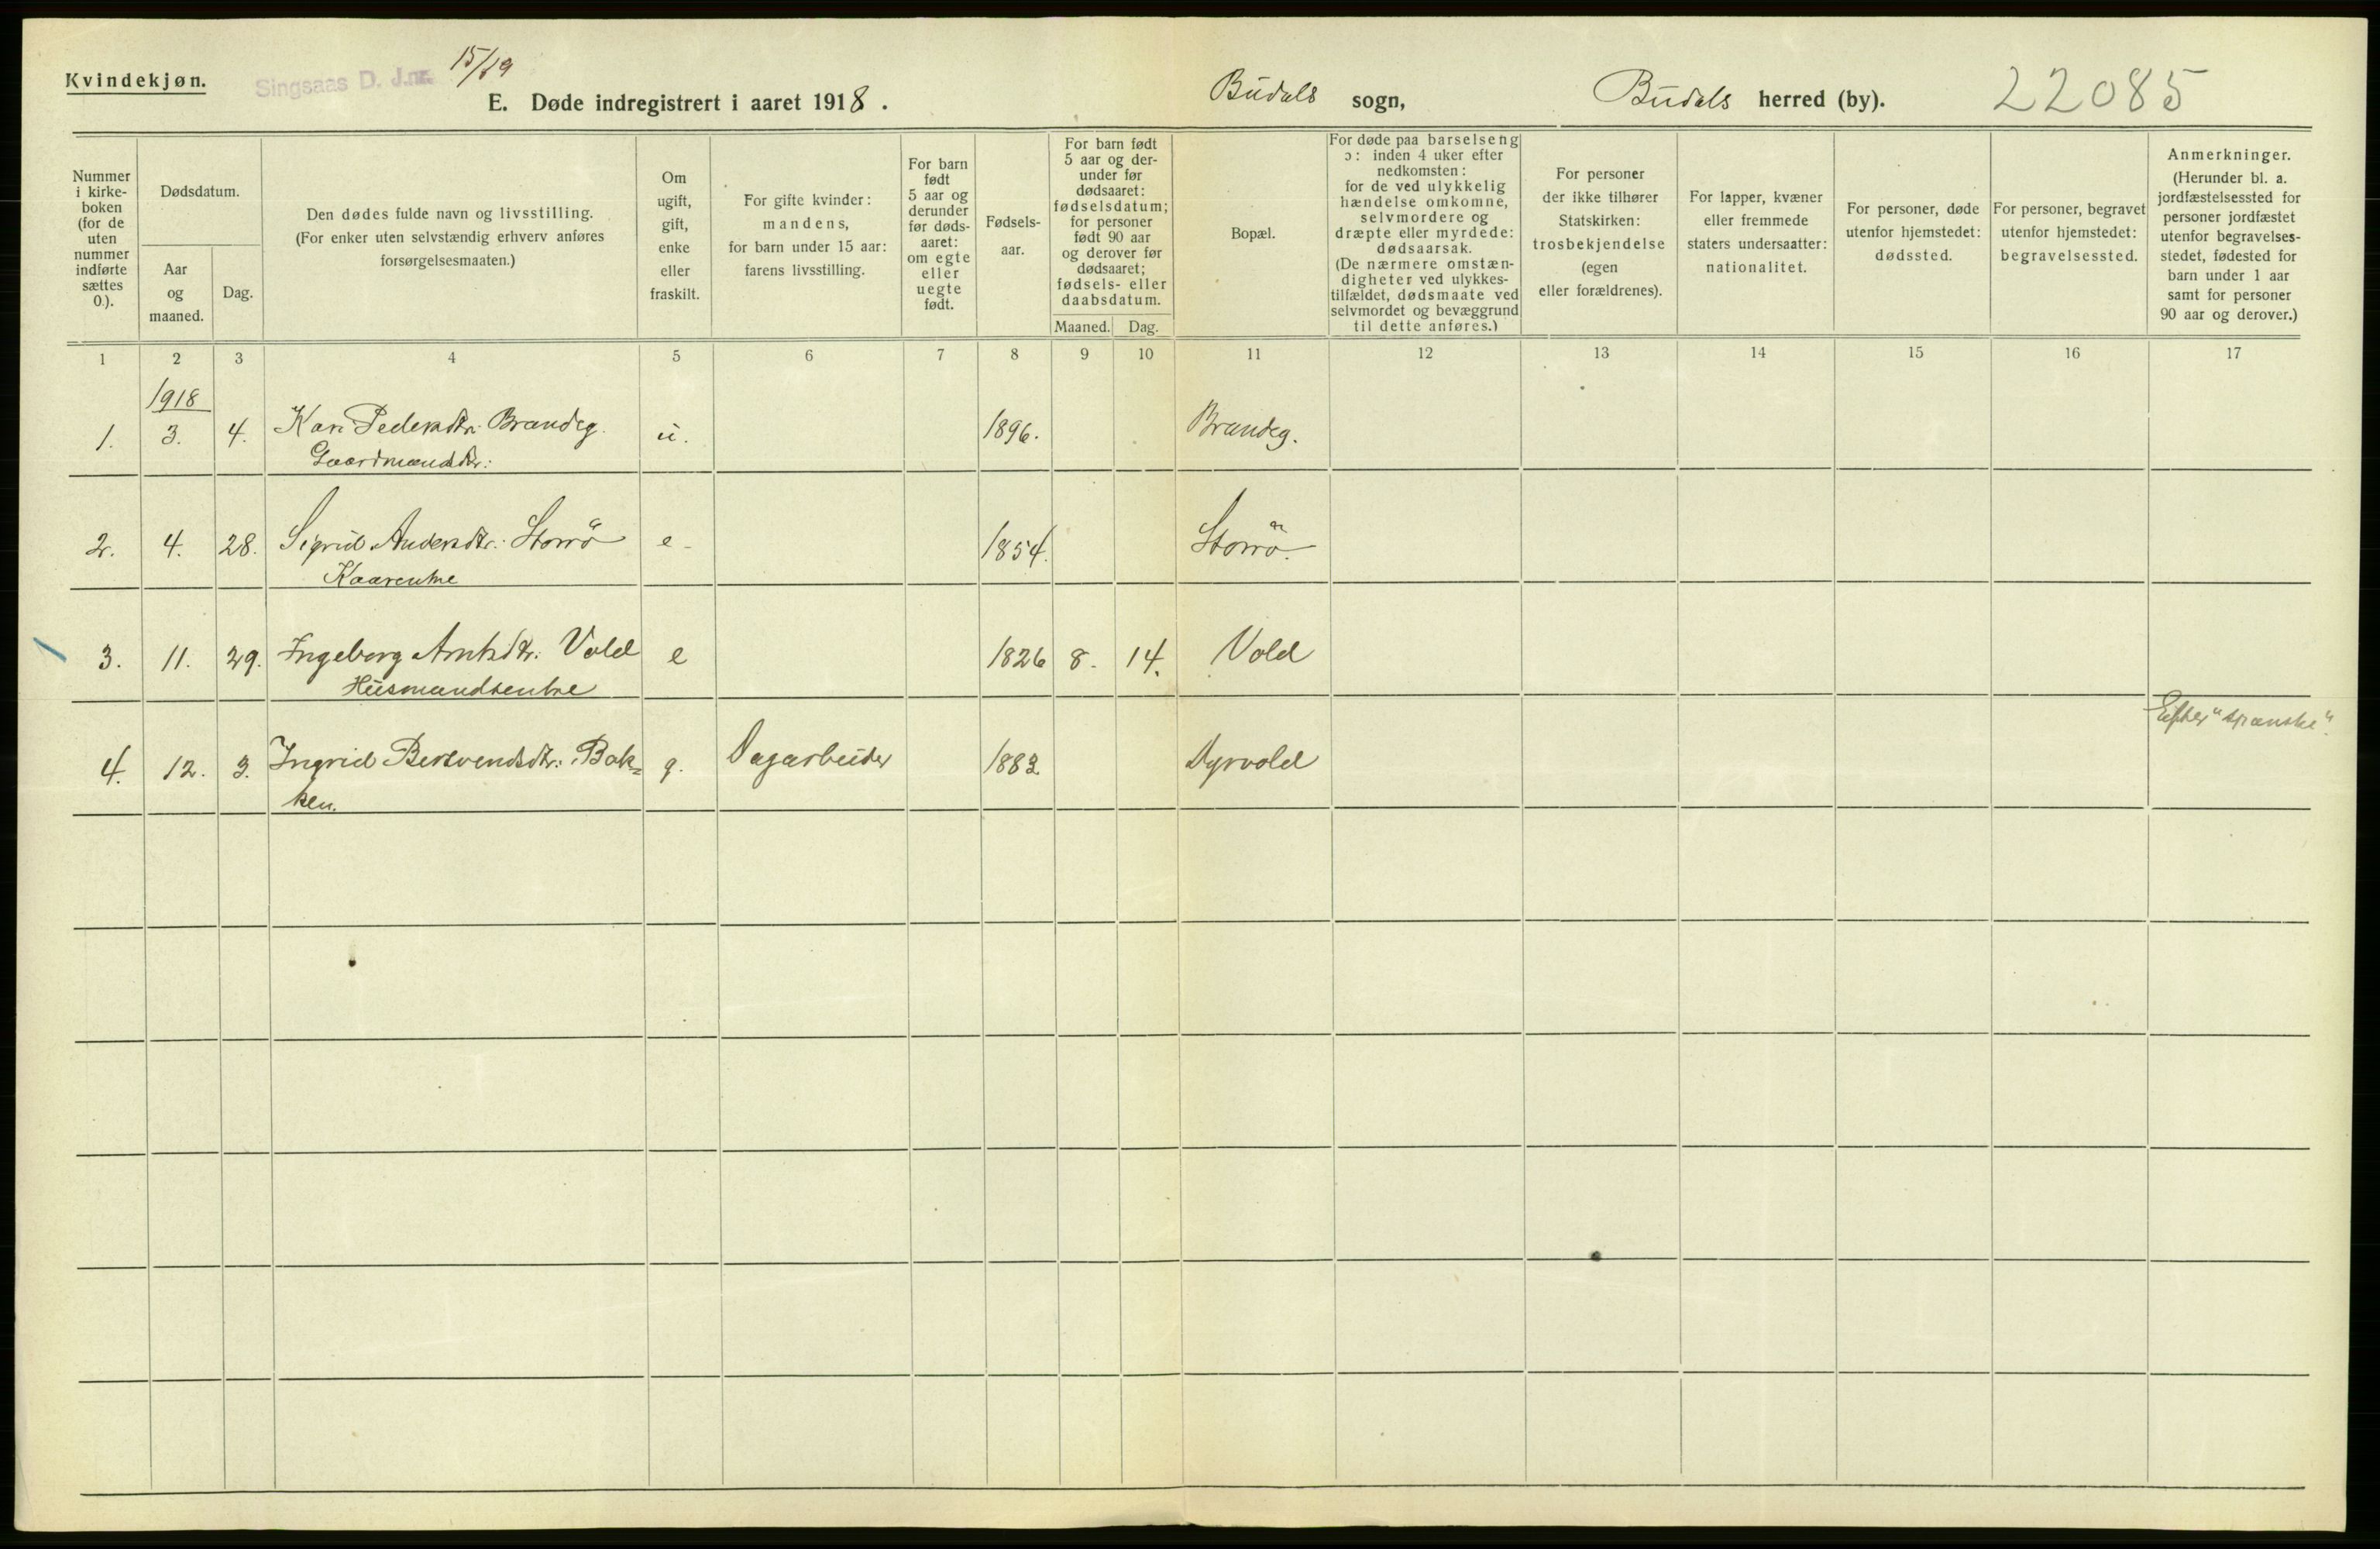 Kvindekjøn.
Singsaas D. J.nr. 15/19
E. Døde indregistrert i aaret 1918.
Budals sogn,
Budals herred (by).
22085
Nummer
i kirke-
boken
(for de
uten
nummer
indførte
sættes
0.).
Dødsdatum.
Aar
og
maaned.
Dag.
Den dødes fulde navn og livsstilling.
(For enker uten selvstændig erhverv anføres
forsørgelsesmaaten.)
Om
ugift,
gift,
enke
eller
fraskilt.
For gifte kvinder:
mandens,
for barn under 15 aar:
farens livsstilling.
For barn
født
5 aar og
derunder
før døds-
aaret:
om egte
eller
uegte
født.
Fødsels-
aar.
For barn født
5 aar og der-
under før
dødsaaret:
fødselsdatum;
for personer
født 90 aar
og derover før
dødsaaret;
fødsels- eller
daabsdatum.
Maaned.
Dag.
Bopæl.
For døde paa barselseng
ɔ: inden 4 uker efter
nedkomsten:
for de ved ulykkelig
hændelse omkomne,
selvmordere og
dræpte eller myrdede:
dødsaarsak.
(De nærmere omstæn-
digheter ved ulykkes-
tilfældet, dødsmaate ved
selvmordet og bevæggrund
til dette anføres.)
For personer
der ikke tilhører
Statskirken:
trosbekjendelse
(egen
eller forældrenes).
For lapper, kvæner
eller fremmede
staters undersaatter:
nationalitet.
For personer, døde
utenfor hjemstedet:
dødssted.
For personer, begravet
utenfor hjemstedet:
begravelsessted.
Anmerkninger.
(Herunder bl. a.
jordfæstelsessted for
personer jordfæstet
utenfor begravelses-
stedet, fødested for
barn under 1 aar
samt for personer
90 aar og derover.)
1 2 3 4 5 6 7 8 9 10 11 12 13 14 15 16 17
1918
1. 3. 4. Kari Pedersdtr. Brandeg. u. 1896. Brandeg.
Gaardmandsdtr:
2. 4. 28. Sigrid Andersdtr: Storrö e- 1854. Storrö.
Kaarenke
3. 11. 29. Ingeborg Arntsdtr. Vold e 1826 8. 14. Vold
Husmandsenke
Efter "spanske".
4. 12. 3. Ingrid Bersvendsdtr: Bak= g. Dagarbeider 1883. Dyrvold
ken.